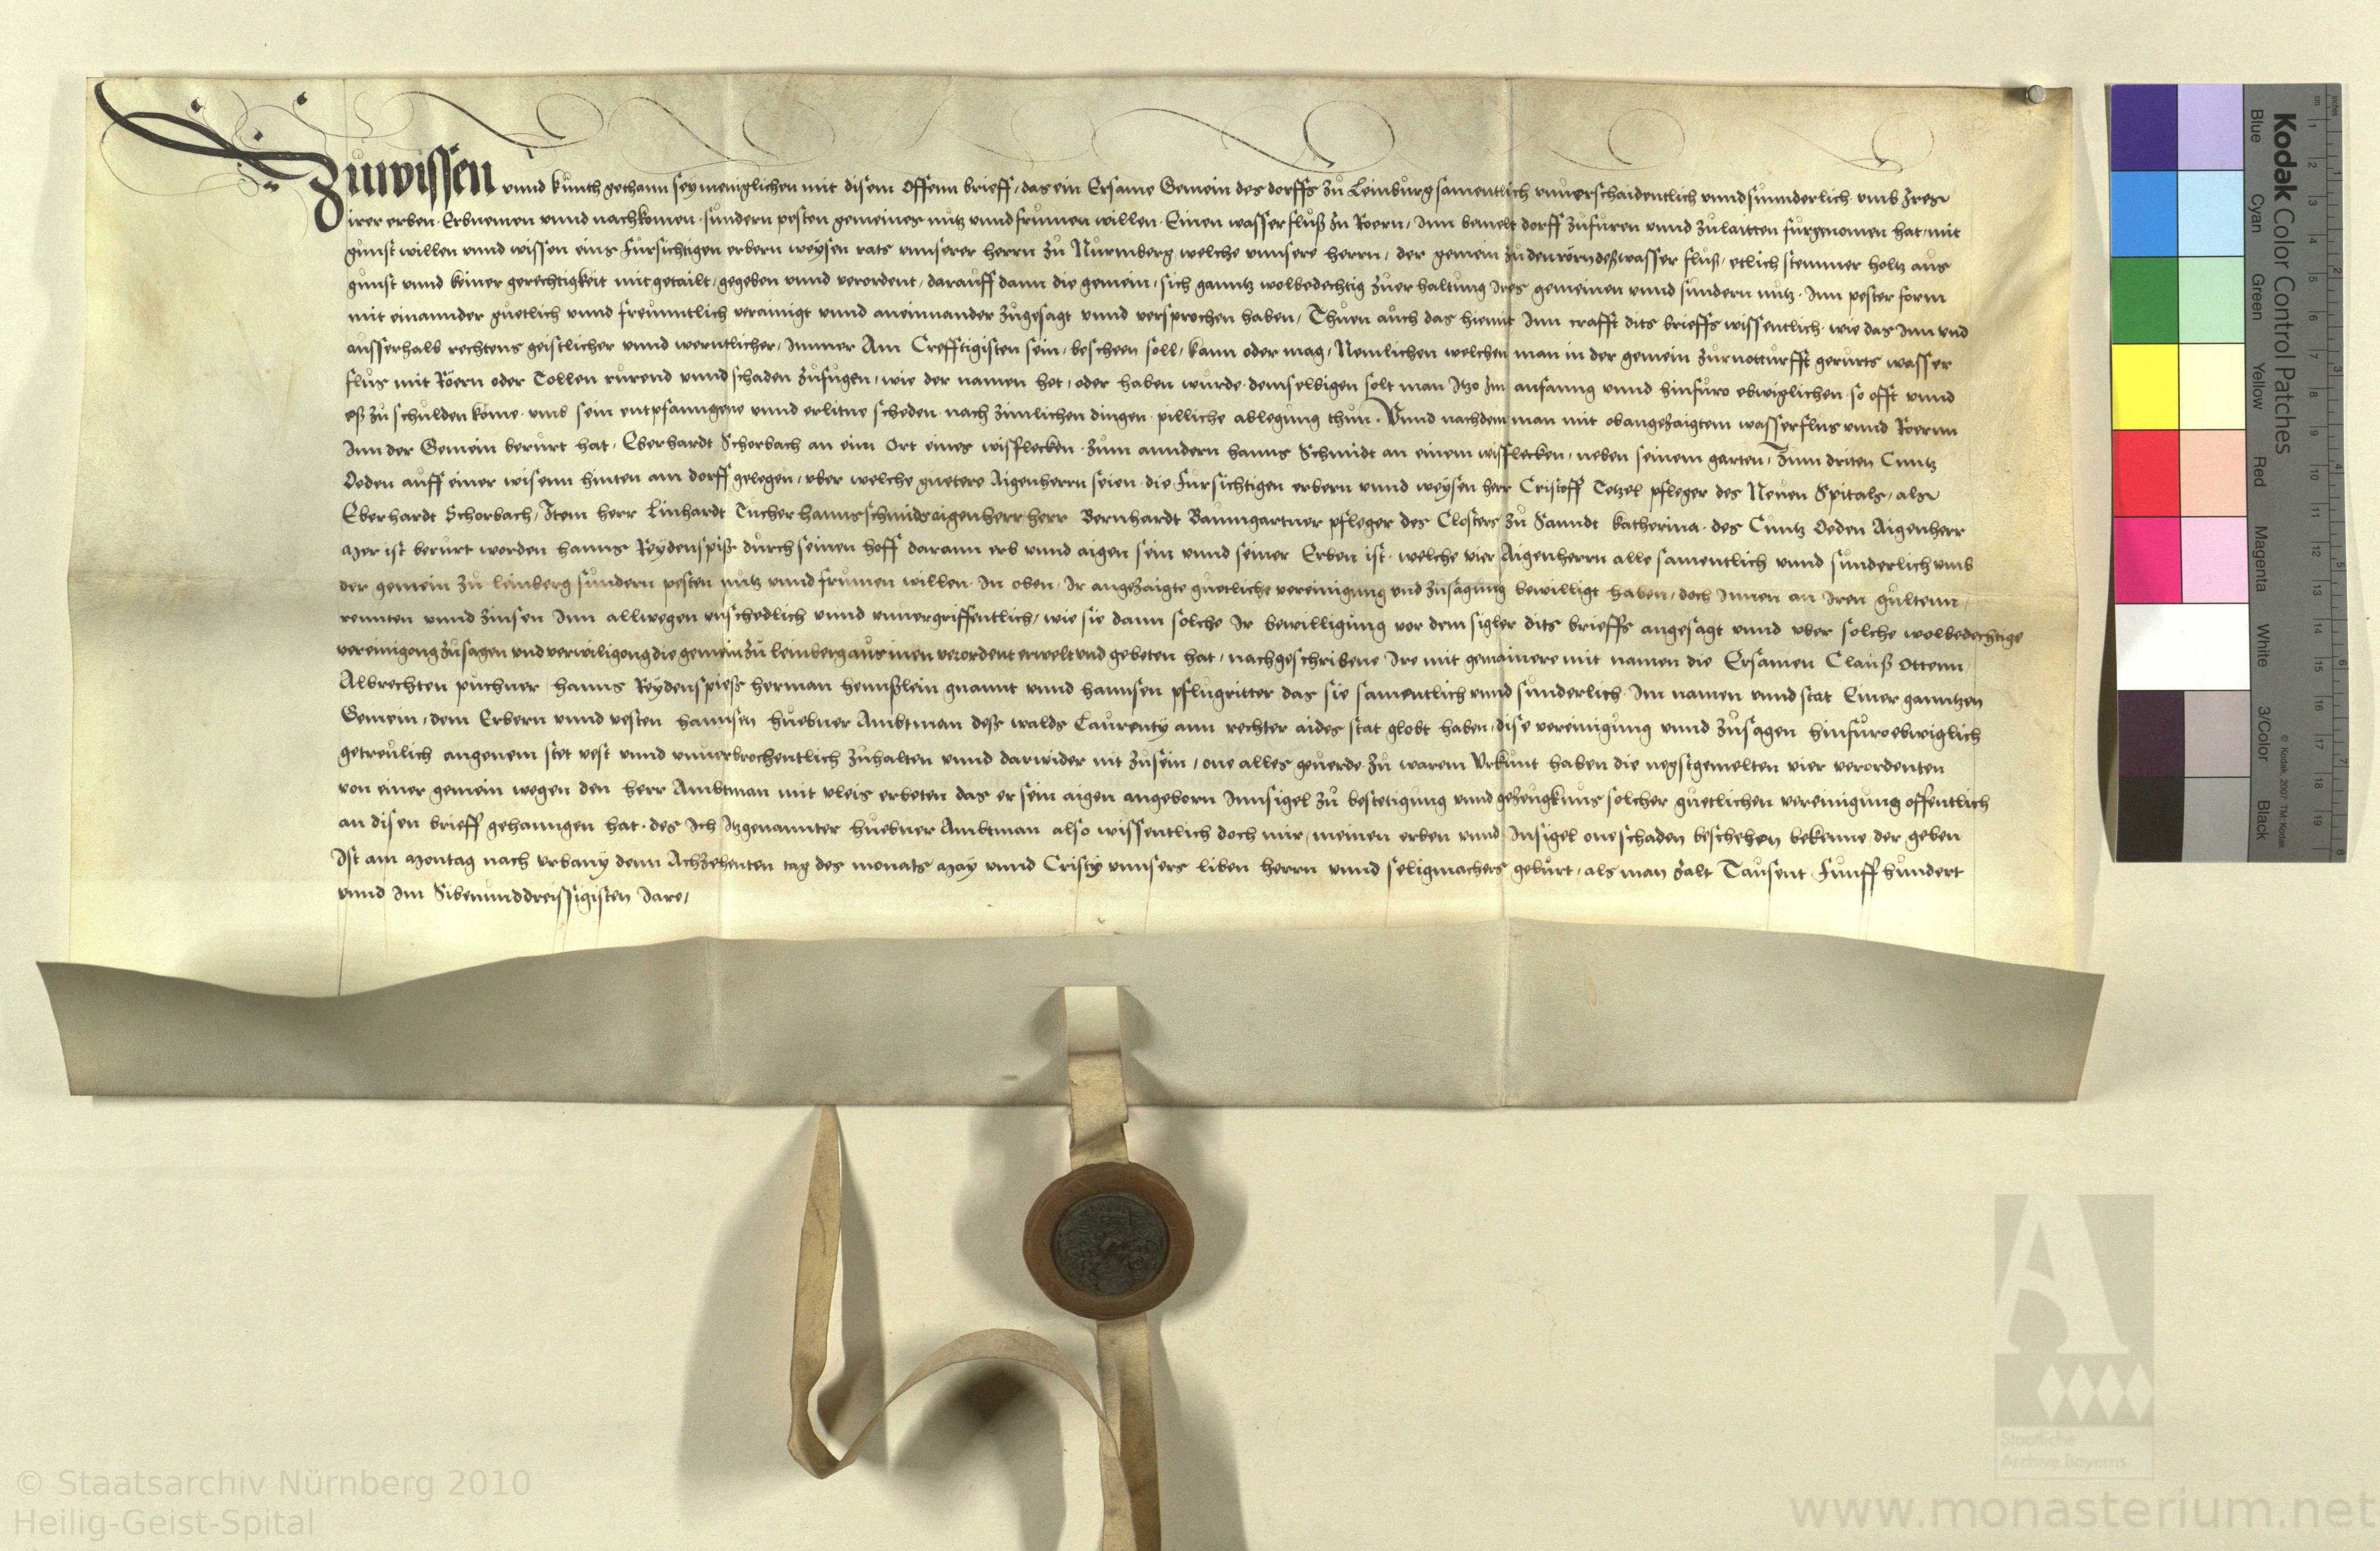 Zuwissen vnnd kunth gethann sey meniglichen mit disem offenn brieff, das ein Ersame Gemein des dorffs zu Leinburg samentlich vnuerschaidentlich vnnd sunnderlich vmb Jres
irer erben Erbnemen vnnd nachkomen sundern pesten gemeines nutz vnnd frumen willen Einen wasserfluß zu Roern, Jnn bemelt dorff zufuren vnnd zulaitten furgenomen hat, mit
gunst willen vnnd wissen eins Fursichtigen erbern weysen rats vnnserer herrn zu Nurmberg welche vnnsere herrn, der gemein zu den rörn deß wasser fluß, etlich stemmer holtz aus
gunst vnnd keiner gerechtigkeit mitgetailt, gegeben vnnd verordent, darauff dann die gemein, sich ganntz wolbedechtig zu erhaltung Jres gemeinen vnnd sundern nutz. Jnn pester form
mit einannder guetlich vnnd freunntlich verainigt vnnd aneinnander zugesagt vnnd versprochen haben, Thuen auch das hiemit Jnn crafft dits brieffs wissentlich wie das Jnn vnd
ausserhalb rechtens geistlicher vnnd werntlicher, Jmmer Am Crefftigisten sein, bescheen soll, kann oder mag, Nemlichen welchen man in der gemein zu notturfft gerurts wasser
flus mit Röern oder Tollen rurend vnnd schaden zufugen, wie der namen het, oder haben wurde demselbigen solt man Jtzo Jm anfanng vnnd hinfuro ebwiglichen so offt vnnd
eß zu schulden köme vmb sein entpfanngene vnnd erlitne scheden nach zimlichen dingen pilliche ablegung thun. Vnnd nachdem man mit obangezaigtem wasserflus vnnd Roernn
Jnn der Gemein berurt hat, Eberhardt Schorbach an eim Ort eines wisflecken zum anndern hanns Schmidt an einem wisflecken, neben seinem garten, Zum driten Cuntz
Deden auff einer wisenn hinten am dorff gelegen, vber welche guetere Aigenherrn seien die Fursichtigen erbern vnnd weysen herr Cristoff Tetzel pfleger des Neuen Spitals, als
Eberhardt Schorbach, Jtem herr Linhardt Tucher hanns schmids aigenherr, herr Bernhardt Baumgartner pfleger des Closters zu Sanndt Katherina des Cuntz Deden Aigenherr
Mer ist berurt worden hanns Reydenspiß durch seinen hoff darann erb vnnd aigen sein vnnd seiner Erben ist. welche vier Aigenherrn alle samentlich vnnd sunderlich vmb
der gemein zu leinberg sundern pesten nutz vnnd frumen willen Jn oben Jr angezaigte guetliche vereinigung vnd zusagung bewilligt haben, doch Jnnen an Jren gultenn,
rennten vnnd zinsen Jnn allwegen vnschedlich vnnd vnuergriffentlich, wie sie dann solche Jr bewilligung vor dem sigler dits brieffs angesagt vnnd vber solche wolbedechtige
vereinigong zusagen vnd verwiligong die gemein zu leinberg aus inen verordent erwelt vnd gebeten hat, nachgeschribene Jre mit gemainere mit namen die Ersamen Clauß Ottenn
Albrechten puchner hanns Reydenspieß herman hennßlein gnannt vnnd hannsen pflugritter das sie samentlich vnnd sunderlich Jm namen vnnd stat Einer ganntzen
Gemein, dem Erbern vnnd vesten hannsen huebner Ambtman deß walds Laurenty ann rechter aides stat globt haben, dise vereinigung vnnd zusagen hinfuro ebwiglich
getreulich angenem stet vest vnnd vnuerbrochentlich zuhalten vnnd darwider nit zusein, one alles geuerde zu warem Vrkunt haben die negstgemelten vier verordenten
von einer gemein wegen den herr Ambtman mit vleis erbeten das er sein aigen angeborn Jnnsigel zu bestetigung vnnd gezeugknus solcher guetlichen vereinigung offentlich
an disen brieff gehanngen hat, des Jch Jtzgenannter huebner Ambtman also wissentlich doch mir, meinen erben vnnd Jnsigel one schaden beschehen bekenne der geben
Jst am Montag nach vrbany denn Achzehenten tag des monats May vnnd Cristy vnnsers liben herrn vnnd seligmachers geburt, als man zalt Tausent Funff hundert
vnnd Jm Sibenunddreissigisten Jare,
Kodak Color Control Patches
Blue Cyan Green Yellow Red Magenta White 3/Color Black
© Kodak, 2007 TM: Kodak
© Staatsarchiv Nürnberg 2010
Heilig-Geist-Spital
Staatliche
Archive Bayerns
www.monasterium.net